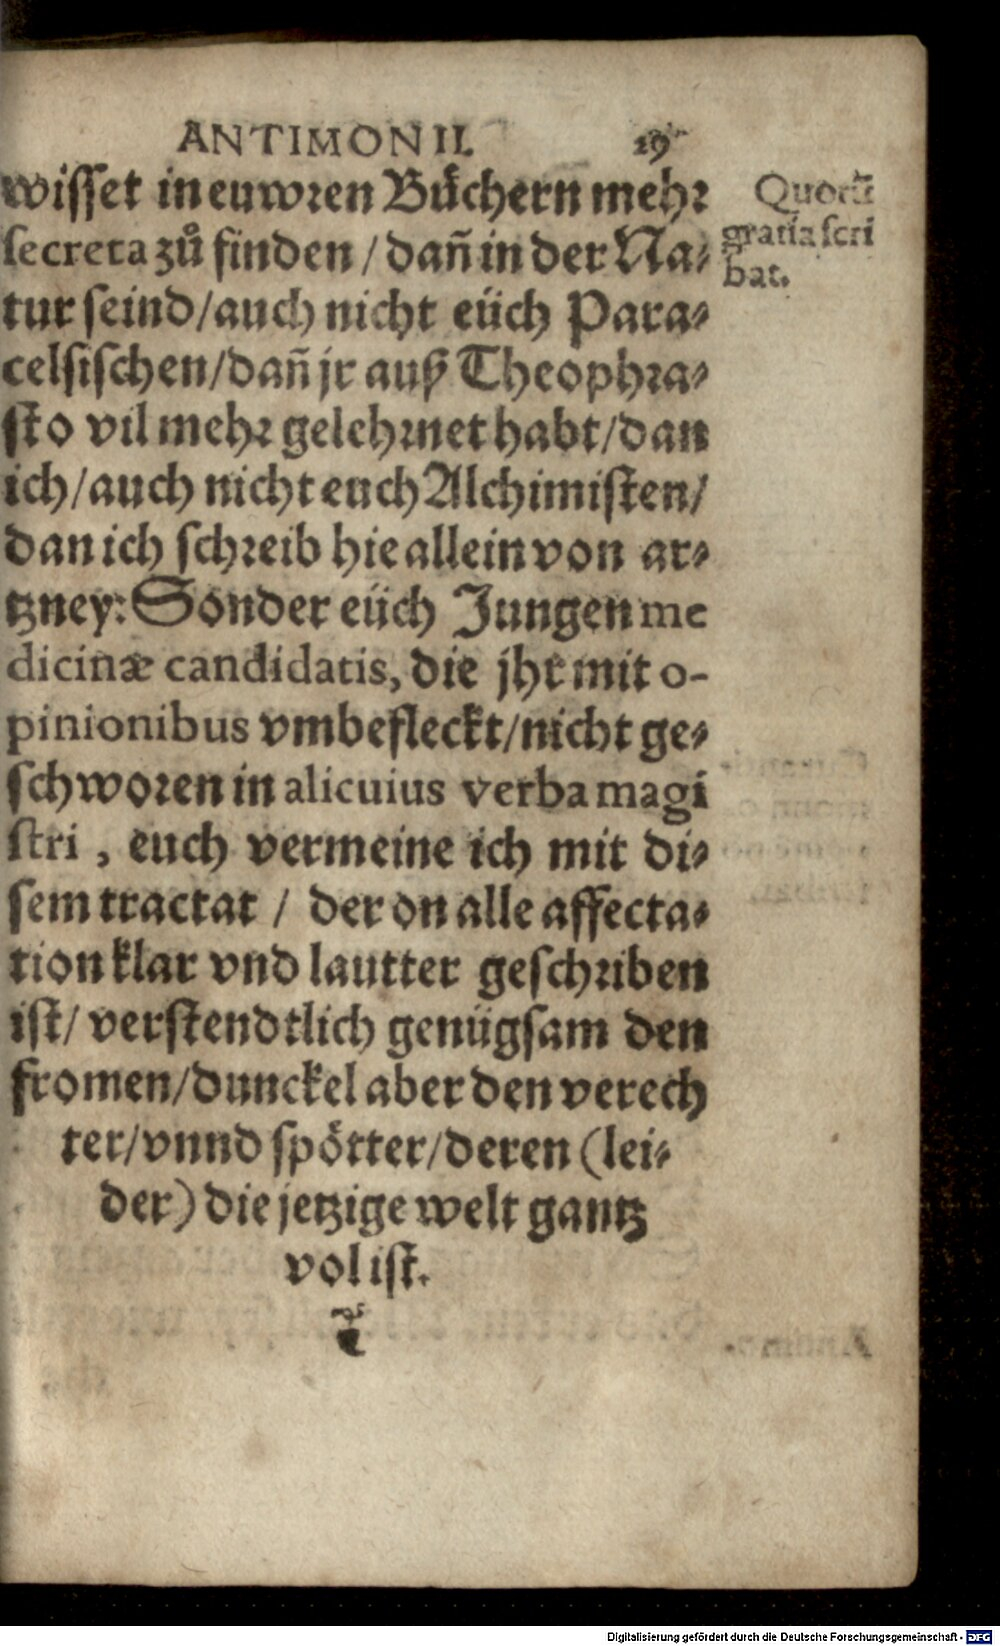 ANTIMONII. 19
wisset in euwren Bůchern mehr
secreta zů finden / dañ in der Na⸗
tur seind/auch nicht eüch Para⸗
celsischen/dañ jr auß Theophra⸗
sto vil mehr gelehrnet habt/dan
ich/auch nicht euch Alchimisten/
dan ich schreib hie allein von ar⸗
tzney: Sonder eüch Jungen me
dicinæ candidatis, die jhr mit o-
pinionibus vmbefleckt/nicht ge⸗
schworen in alicuius verba magi
stri, euch vermeine ich mit di⸗
sem tractat / der on alle affecta⸗
tion klar vnd lautter geschriben
ist/ verstendtlich genügsam den
fromen/dunckel aber den verech
ter/vnnd spötter/deren (lei⸗
der) die jetzige welt gantz
vol ist.
Quorū
gratia scri
bat.
Digitalisierung gefördert durch die Deutsche Forschungsgemeinschaft - DFG